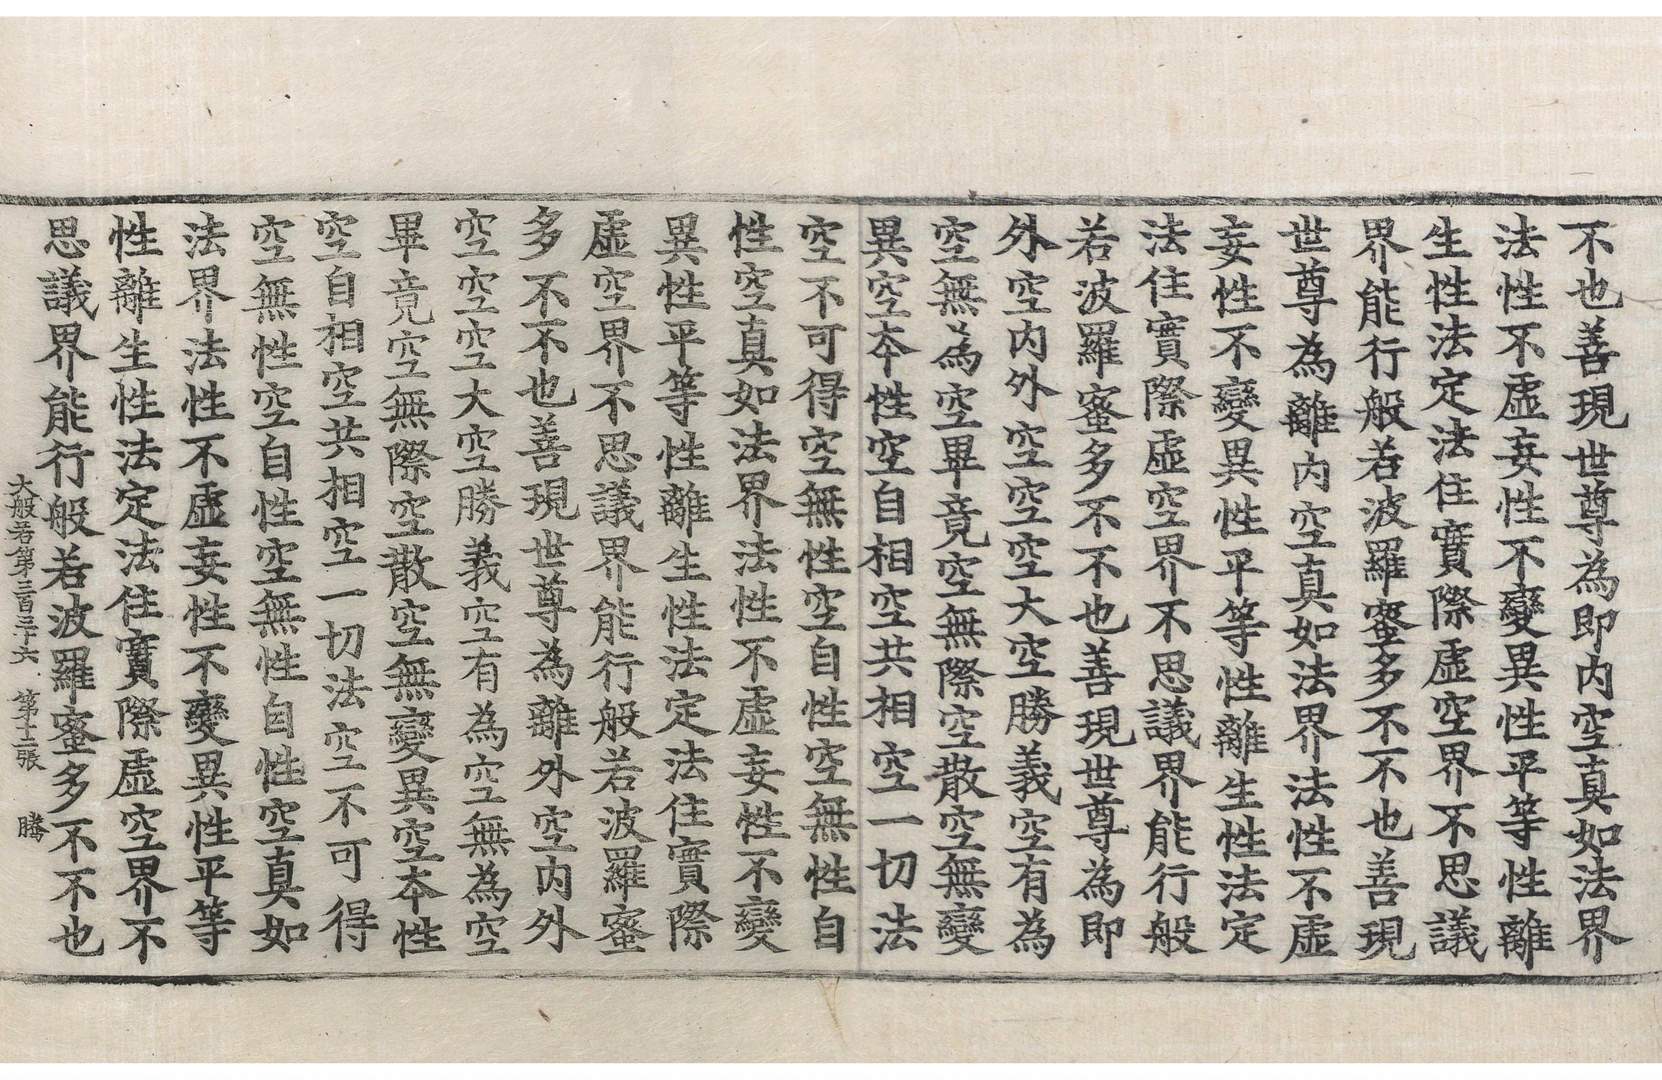 不也善現世尊為即内空真如法界
法性不虛妄性不變異性平等性離
生性法定法住實際虛空界不思議
界能行般若波羅蜜多不不也善現
世尊為離内空真如法界法性不虛
妄性不變異性平等性離生性法定
法住實際虛空界不思議界能行般
若波羅蜜多不不也善現世尊為即
外空内外空空空大空勝義空有為
空無為空畢竟空無際空散空無變
異空本性空自相空共相空一切法
空不可得空無性空自性空無性自
性空真如法界法性不虛妄性不變
異性平等性離生性法定法住實際
虛空界不思議界能行般若波羅蜜
多不不也善現世尊為離外空内外
空空空大空勝義空有為空無為空
畢竟空無際空散空無變異空本性
空自相空共相空一切法空不可得
空無性空自性空無性自性空真如
法界法性不虛妄性不變異性平等
性離生性法定法住實際虛空界不
思議界能行般若波羅蜜多不不也
大般若第三百三十六 第十二張 騰